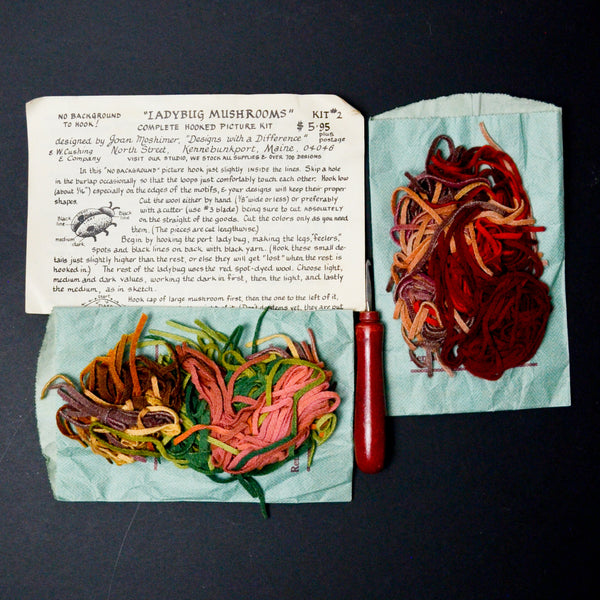 NO BACKGROUND TO HOOK!
"LADYBUG MUSHROOMS" KIT #2
COMPLETE HOOKED PICTURE KIT $5.95 plus postage
designed by Joan Moshimer, "Designs with a Difference"
E. W. Cushing & Company North Street, Kennebunkport, Maine, 04046
VISIT OUR STUDIO, WE STOCK ALL SUPPLIES & OVER 700 DESIGNS
In this "NO BACKGROUND" picture hook just slightly INSIDE the lines. Skip a hole
in the burlap occasionally so that the loops just comfortably touch each other. Hook low
(about 1/16") especially on the edges of the motifs, & your designs will keep their proper
shapes. Cut the wool either by hand (1/8" wide or less) or preferably
with a cutter (use #3 blade) being sure to cut ABSOLUTELY
on the straight of the goods. Cut the colors only as you need
them. (The pieces are cut lengthwise.)
Black line
Black line
medium
dark
Begin by hooking the part lady bug, making the legs, "feelers",
spots and black lines on back, with black yarn. (Hook these small de-
tails just slightly higher than the rest, or else they will get "lost" when the rest is
hooked in.) The rest of the ladybug uses the red spot-dyed wool. Choose light,
medium and dark values, working the dark in first, then the light, and lastly
the medium, as in sketch.
Start
Hook cap of large mushroom first, then the one to the left of it,